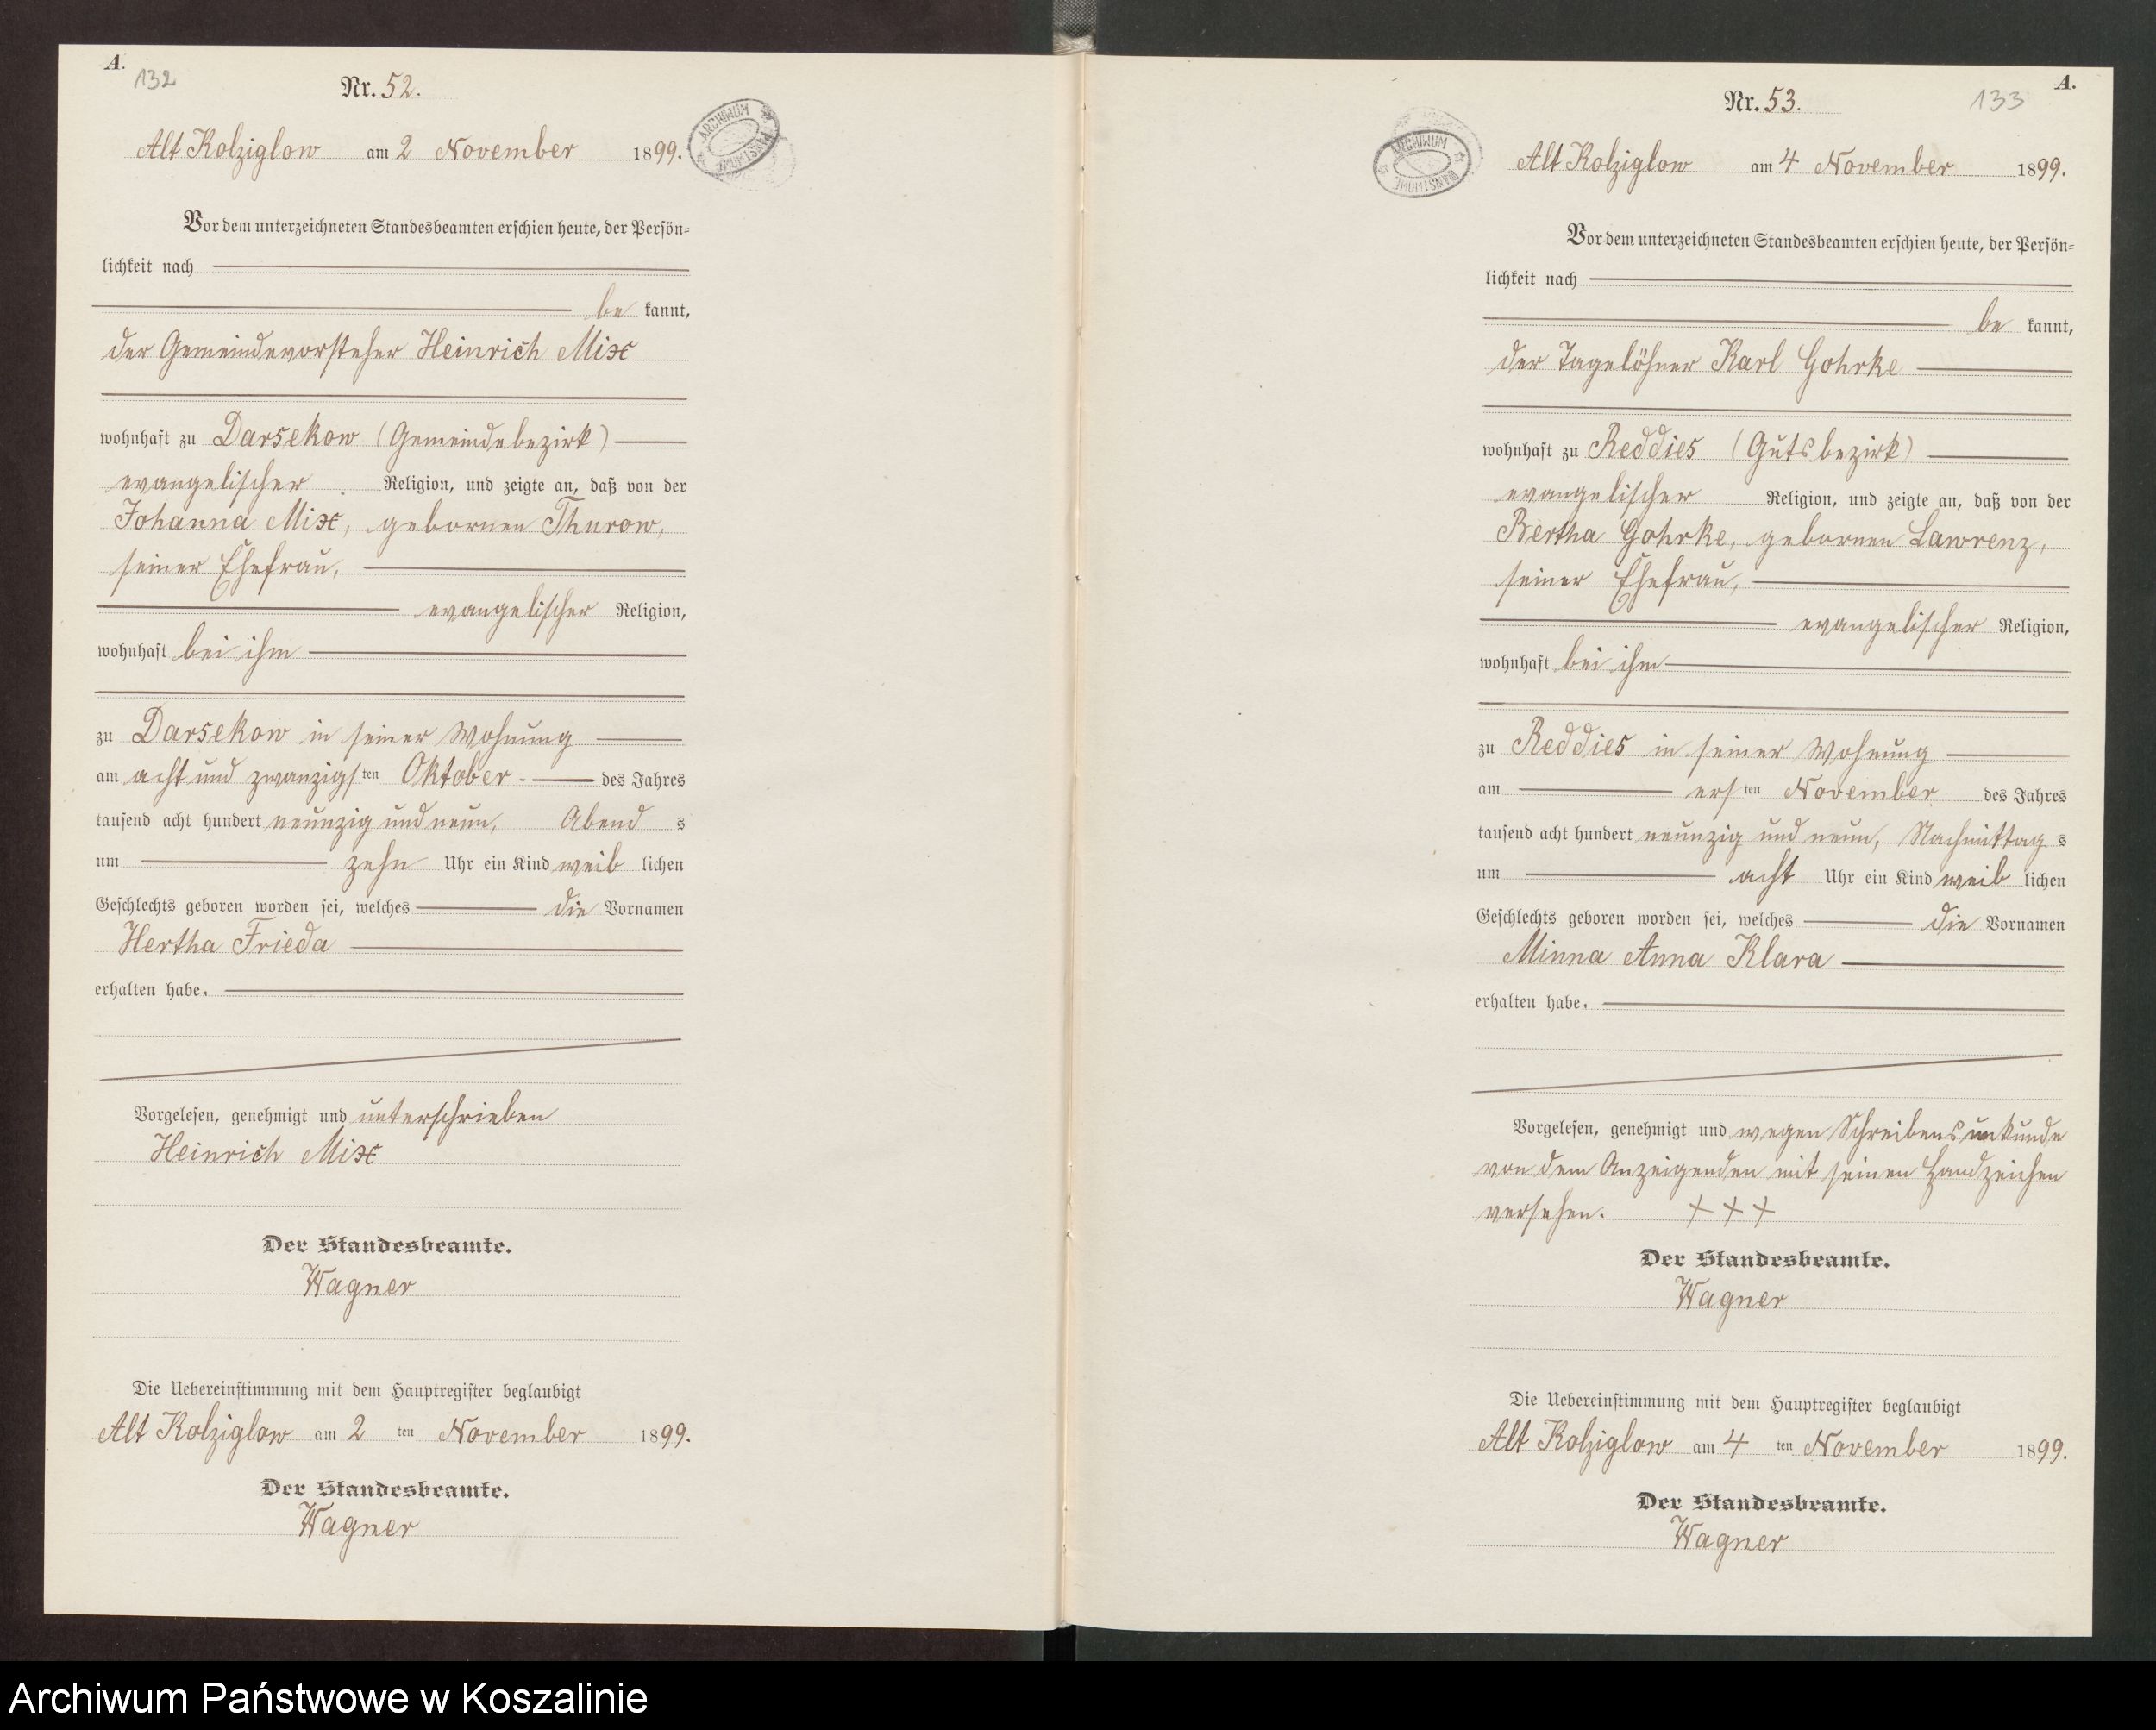 A.
132
Nr. 52.
Alt Kolziglow am 2 November 1899.
ARCHIWUM PAŃSTWOWE
Vor dem unterzeichneten Standesbeamten erschien heute, der Persön-
lichkeit nach
be kannt,
der Gemeindevorsteher Heinrich Mix
wohnhaft zu Darsekow (Gemeindebezirk)
evangelischer Religion, und zeigte an, daß von der
Johanna Mix, gebornen Thurow,
seiner Ehefrau,
evangelischer Religion,
wohnhaft bei ihm
zu Darsekow in seiner Wohnung
am acht und zwanzigsten Oktober des Jahres
tausend acht hundert neunzig und neun, Abend s
um zehn Uhr ein Kind weib lichen
Geschlechts geboren worden sei, welches die Vornamen
Hertha Frieda
erhalten habe.
Vorgelesen, genehmigt und unterschrieben
Heinrich Mix
Der Standesbeamte.
Wagner
Die Uebereinstimmung mit dem Hauptregister beglaubigt
Alt Kolziglow am 2 ten November 1899.
Der Standesbeamte.
Wagner
A.
133
Nr. 53.
ARCHIWUM PAŃSTWOWE
Alt Kolziglow am 4 November 1899.
Vor dem unterzeichneten Standesbeamten erschien heute, der Persön-
lichkeit nach
be kannt,
der Tagelöhner Karl Gohrke
wohnhaft zu Reddies (Gutsbezirk)
evangelischer Religion, und zeigte an, daß von der
Bertha Gohrke, gebornen Lawrenz,
seiner Ehefrau,
evangelischer Religion,
wohnhaft bei ihm
zu Reddies in seiner Wohnung
am ersten November des Jahres
tausend acht hundert neunzig und neun, Nachmittag s
um acht Uhr ein Kind weib lichen
Geschlechts geboren worden sei, welches die Vornamen
Minna Anna Klara
erhalten habe.
Vorgelesen, genehmigt und wegen Schreibensunkunde
von dem Anzeigenden mit seinen Handzeichen
versehen. + + +
Der Standesbeamte.
Wagner
Die Uebereinstimmung mit dem Hauptregister beglaubigt
Alt Kolziglow am 4 ten November 1899.
Der Standesbeamte.
Wagner
Archiwum Państwowe w Koszalinie